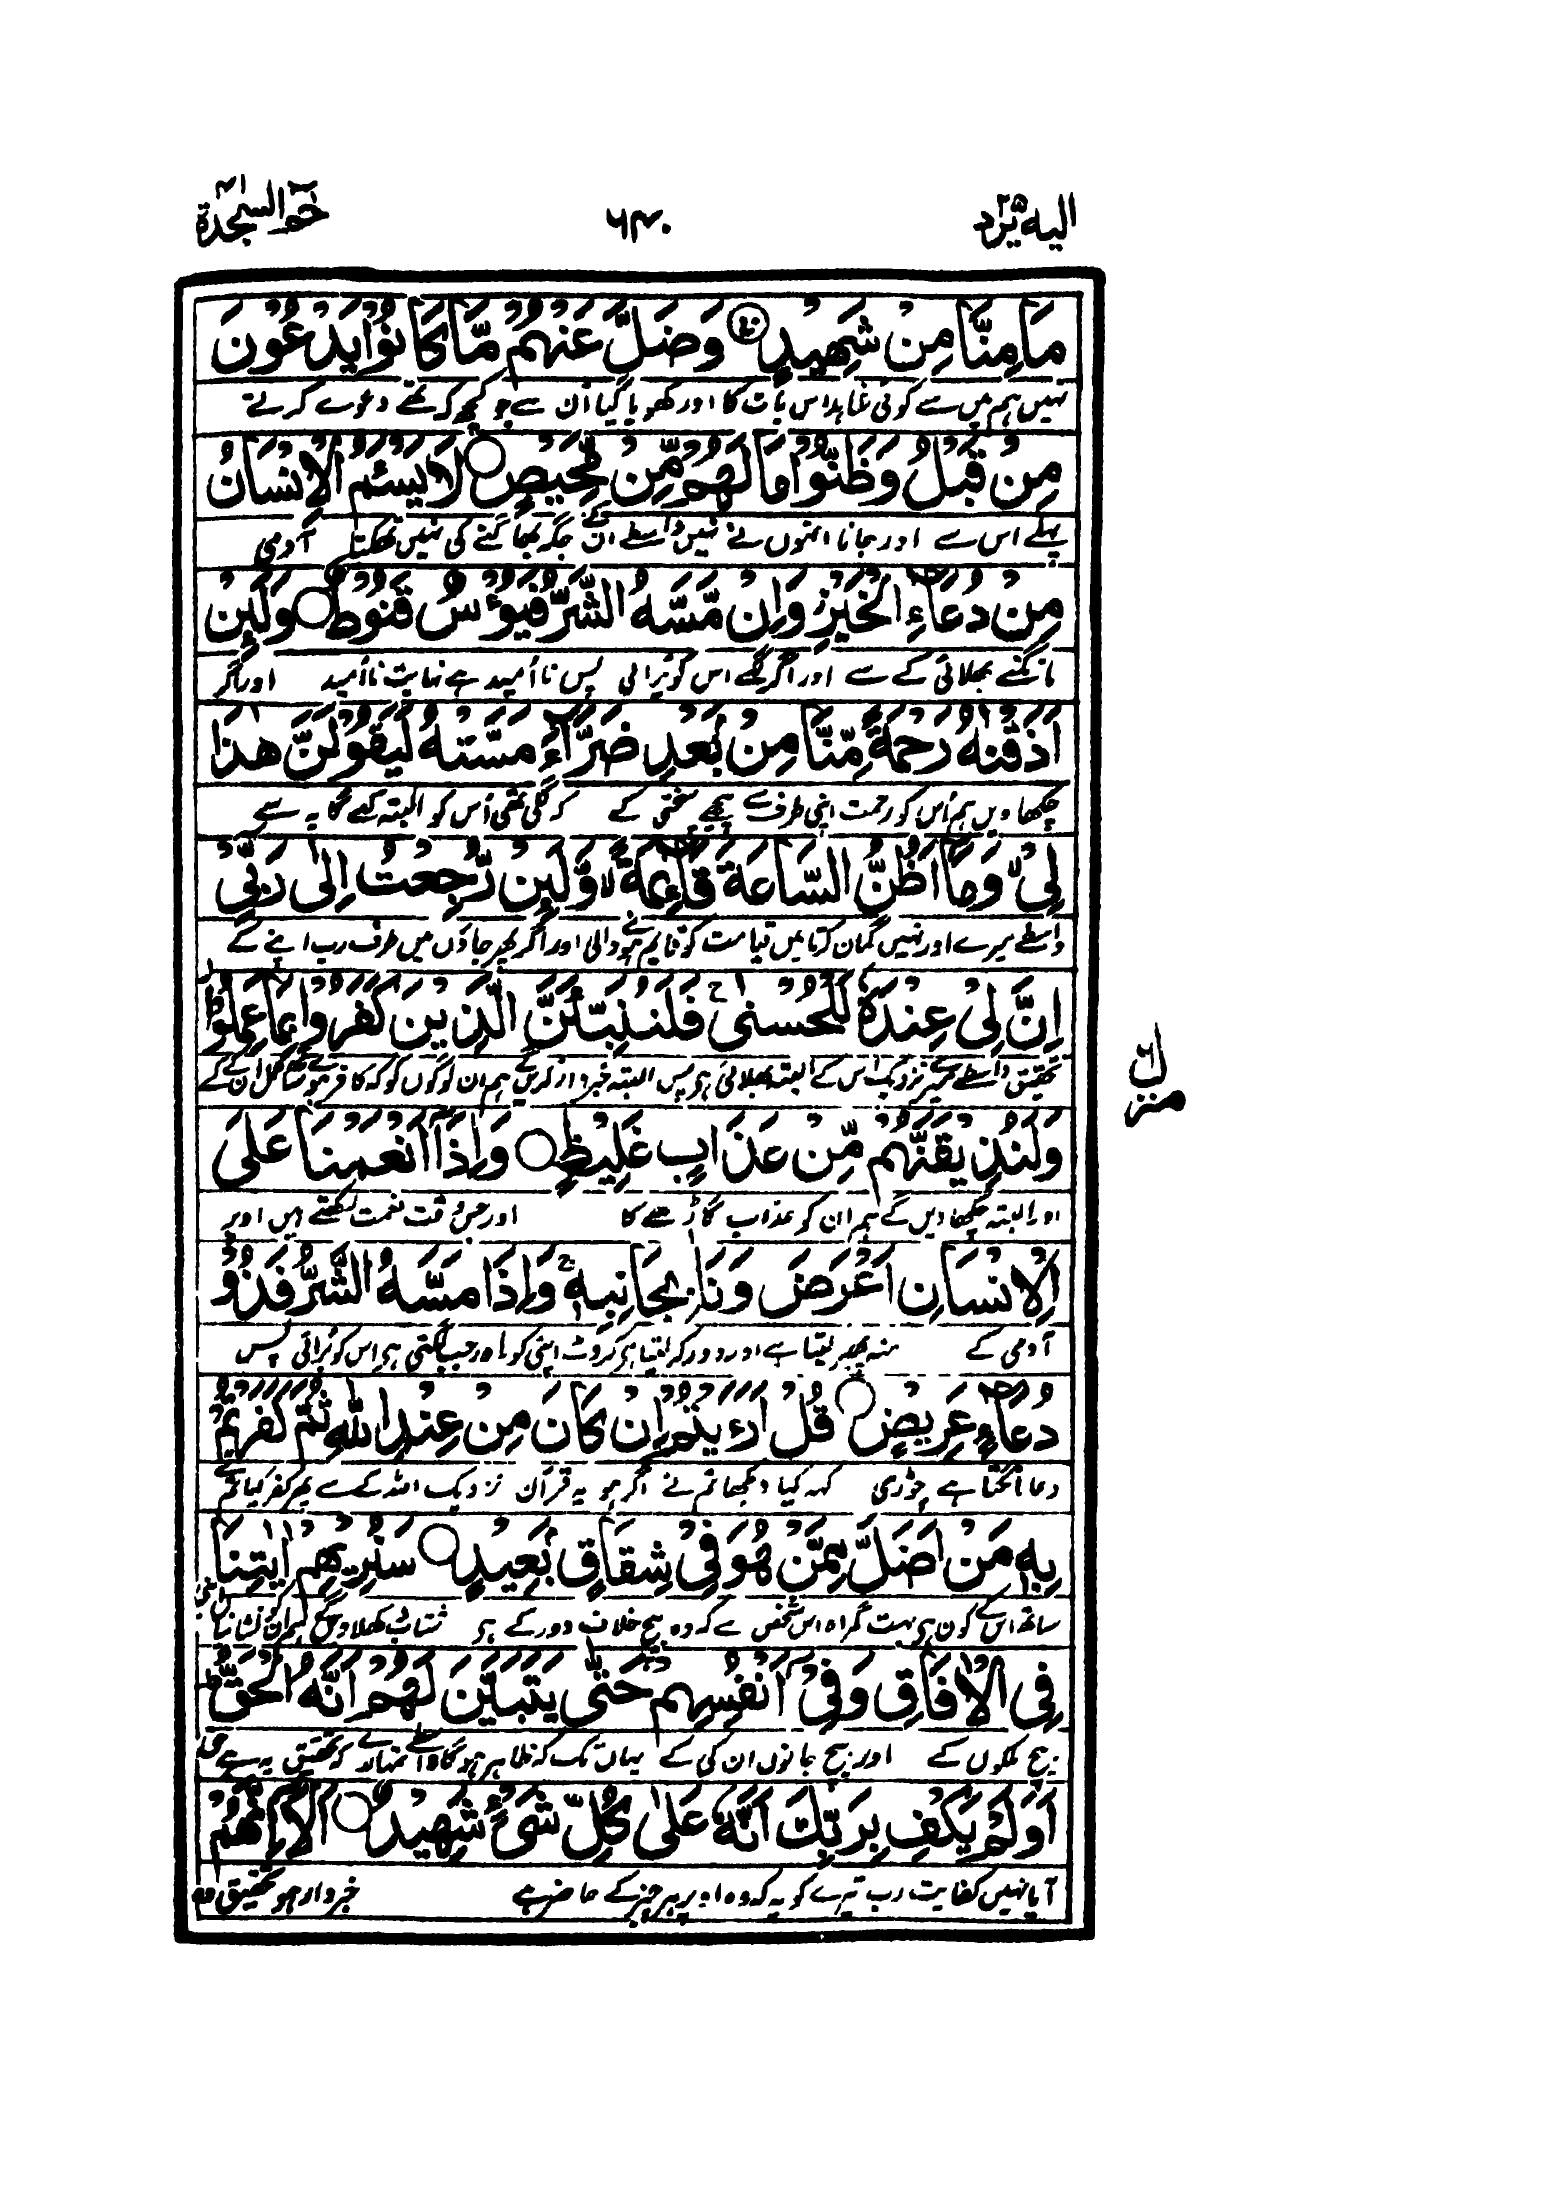 الیه یرد ۲۵
۶۴۰
حٰمٓ السجدة ۴۱
مَا مِنَّا مِنْ شَهِیْدٍ ۚ وَضَلَّ عَنْهُمْ مَّا كَانُوْا یَدْعُوْنَ
نہیں ہم میں سے کوئی شاہد اس بات کا اور کھویا گیا ان سے جو کچھ کہ تھے دعوے کرتے
مِنْ قَبْلُ وَظَنُّوْا مَا لَهُمْ مِّنْ مَّحِیْصٍ ○ لَا یَسْـَٔمُ الْاِنْسَانُ
پہلے اس سے اور جانا انہوں نے نہیں واسطے ان کے جگہ بھاگنے کی نہیں تھکتا آدمی
مِنْ دُعَآءِ الْخَیْرِ وَاِنْ مَّسَّهُ الشَّرُّ فَیَـُٔوْسٌ قَنُوْطٌ ○ وَلَىِٕنْ
مانگنے بھلائی کے سے اور اگر لگے اس کو برائی پس نا اُمید ہے نہایت نا اُمید اور اگر
اَذَقْنٰهُ رَحْمَةً مِّنَّا مِنْۢ بَعْدِ ضَرَّآءَ مَسَّتْهُ لَیَقُوْلَنَّ هٰذَا
چکھاویں ہم اُس کو رحمت اپنی طرف سے پیچھے سختی کے کہ لگی تھی اُس کو البتہ کہے گا یہ ہے
لِیْ ۙ وَمَاۤ اَظُنُّ السَّاعَةَ قَآىِٕمَةً ۙ وَّلَىِٕنْ رُّجِعْتُ اِلٰى رَبِّیْۤ
واسطے میرے اور نہیں گمان کرتا میں قیامت کو قائم ہونے والی اور اگر پھر جاؤں میں طرف رب اپنے کے
اِنَّ لِیْ عِنْدَهٗ لَلْحُسْنٰى ۚ فَلَنُنَبِّئَنَّ الَّذِیْنَ كَفَرُوْا بِمَا عَمِلُوْا
تحقیق واسطے میرے نزدیک اس کے البتہ بھلائی ہے پس البتہ خبردار کریں گے ہم ان لوگوں کو کہ کافر ہوئے ساتھ عمل ان کے کے
وَلَنُذِیْقَنَّهُمْ مِّنْ عَذَابٍ غَلِیْظٍ ○ وَاِذَاۤ اَنْعَمْنَا عَلَى
اور البتہ چکھا دیں گے ہم ان کو عذاب گاڑھے کا اور جس وقت نعمت رکھتے ہیں اوپر
الْاِنْسَانِ اَعْرَضَ وَنَاٰ بِجَانِبِهٖ ۚ وَاِذَا مَسَّهُ الشَّرُّ فَذُوْ
آدمی کے منہ پھیر لیتا ہے اور دور کر لیتا ہے کروٹ اپنی کو اور جب لگتی ہے اس کو برائی پس
دُعَآءٍ عَرِیْضٍ ○ قُلْ اَرَءَیْتُمْ اِنْ كَانَ مِنْ عِنْدِ اللّٰهِ ثُمَّ كَفَرْتُمْ
دعا مانگتا ہے چوڑی کہہ کیا دیکھا تم نے اگر ہو یہ قرآن نزدیک اللہ کے سے پھر کفر کیا تم نے
بِهٖ مَنْ اَضَلُّ مِمَّنْ هُوَ فِیْ شِقَاقٍۭ بَعِیْدٍ ○ سَنُرِیْهِمْ اٰیٰتِنَا
ساتھ اس کے کون ہے بہت گمراہ اس شخص سے کہ وہ بیچ خلاف دور کے ہے شتاب دکھلاویں گے ہم ان کو نشانیاں اپنی
فِی الْاٰفَاقِ وَفِیْۤ اَنْفُسِهِمْ حَتّٰى یَتَبَیَّنَ لَهُمْ اَنَّهُ الْحَقُّ ؕ
بیچ ملکوں کے اور بیچ جانوں ان کی کے یہاں تک کہ ظاہر ہوگا واسطے ان کے کہ تحقیق یہ ہے حق
اَوَلَمْ یَكْفِ بِرَبِّكَ اَنَّهٗ عَلٰى كُلِّ شَیْءٍ شَهِیْدٌ ○ اَلَاۤ اِنَّهُمْ
آیا نہیں کفایت رب تیرے کو یہ کہ وہ اوپر ہر چیز کے حاضر ہے خبردار ہو تحقیق وہ
منزل ۶